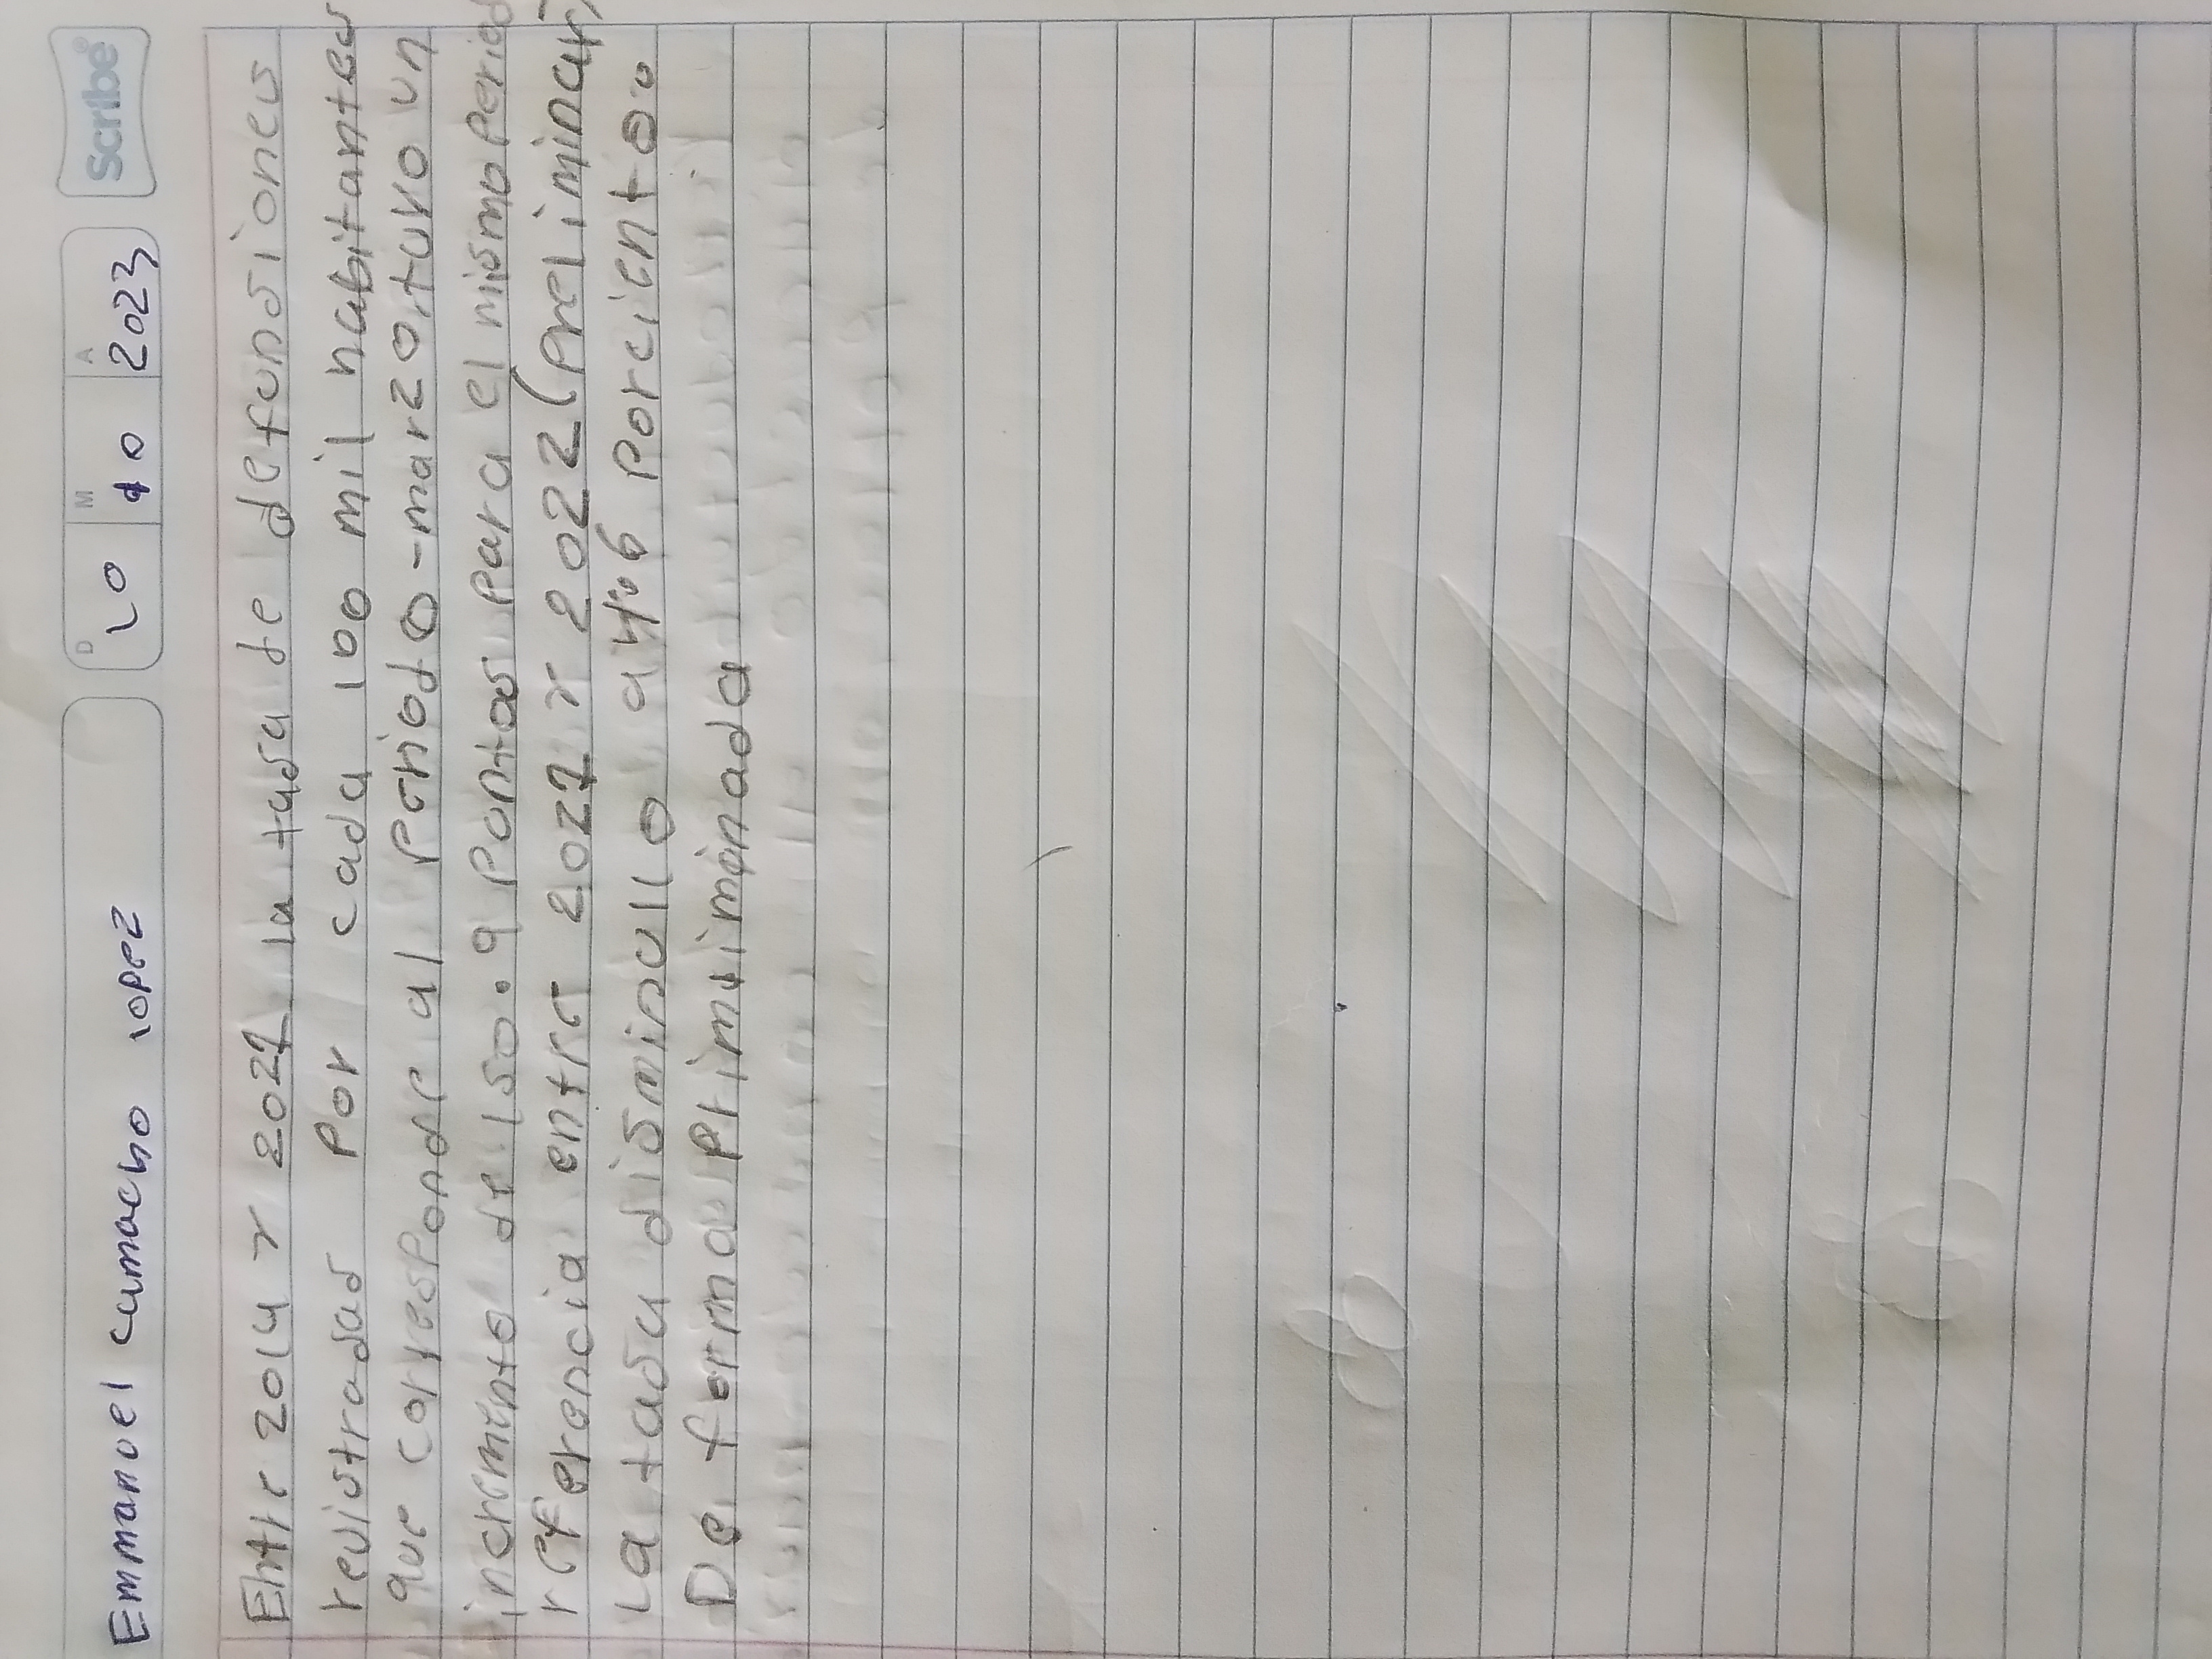 Scribe
D M A
Emmanuel Camacho lopez 10 10 2023
Entre 2014 y 2021 la tasa de defunsiones
registradas Por cada 100 mil habitantes
que corresponde al Periodo - marzo, tuvo un
incremento de 150.9 Puntos Para el mismo Period
referencia entre 2021 y 2022 (Preliminar)
La tasa disminullo a 4.6 Porciento.
De forma Priminada